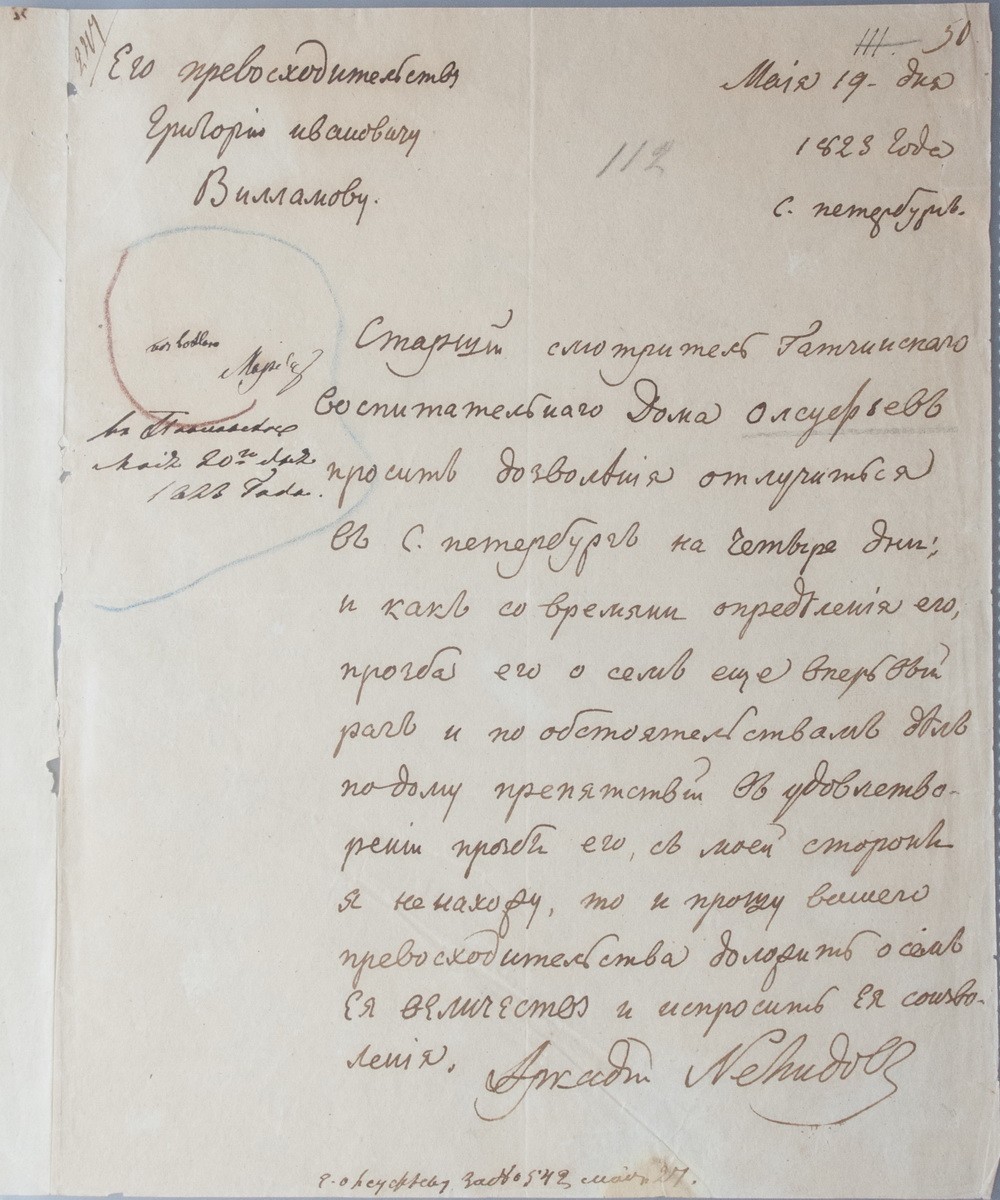 III. 50
Его превосходительству
Григорію ивановичу
Вилламову.
Маія 19- дня
1823 Года
С. петербургъ.
112
позволяю
Марія
въ Павловске
Маія 20го дня
1823 Года.
Старшій смотритель Гатчинскаго
воспитательнаго Дома олсуфьевъ
проситъ дозволѣнія отлучиться
въ С. петербургъ на четыре дни;
и какъ со времяни опредѣленія его,
прозба его о семъ еще впервый
разъ и по обстоятельствамъ дѣлъ
по дому препятствій въ удовлетво-
реніи прозбы его, съ моей стороны
я не нахожу, то и прошу вашего
превосходительства доложить о семъ
ЕЯ ВЕЛИЧЕСТВУ и испросить ЕЯ соизво-
ленія.
Аркадій Нелидовъ
г. олсуфьеву за № 542 маія 21.